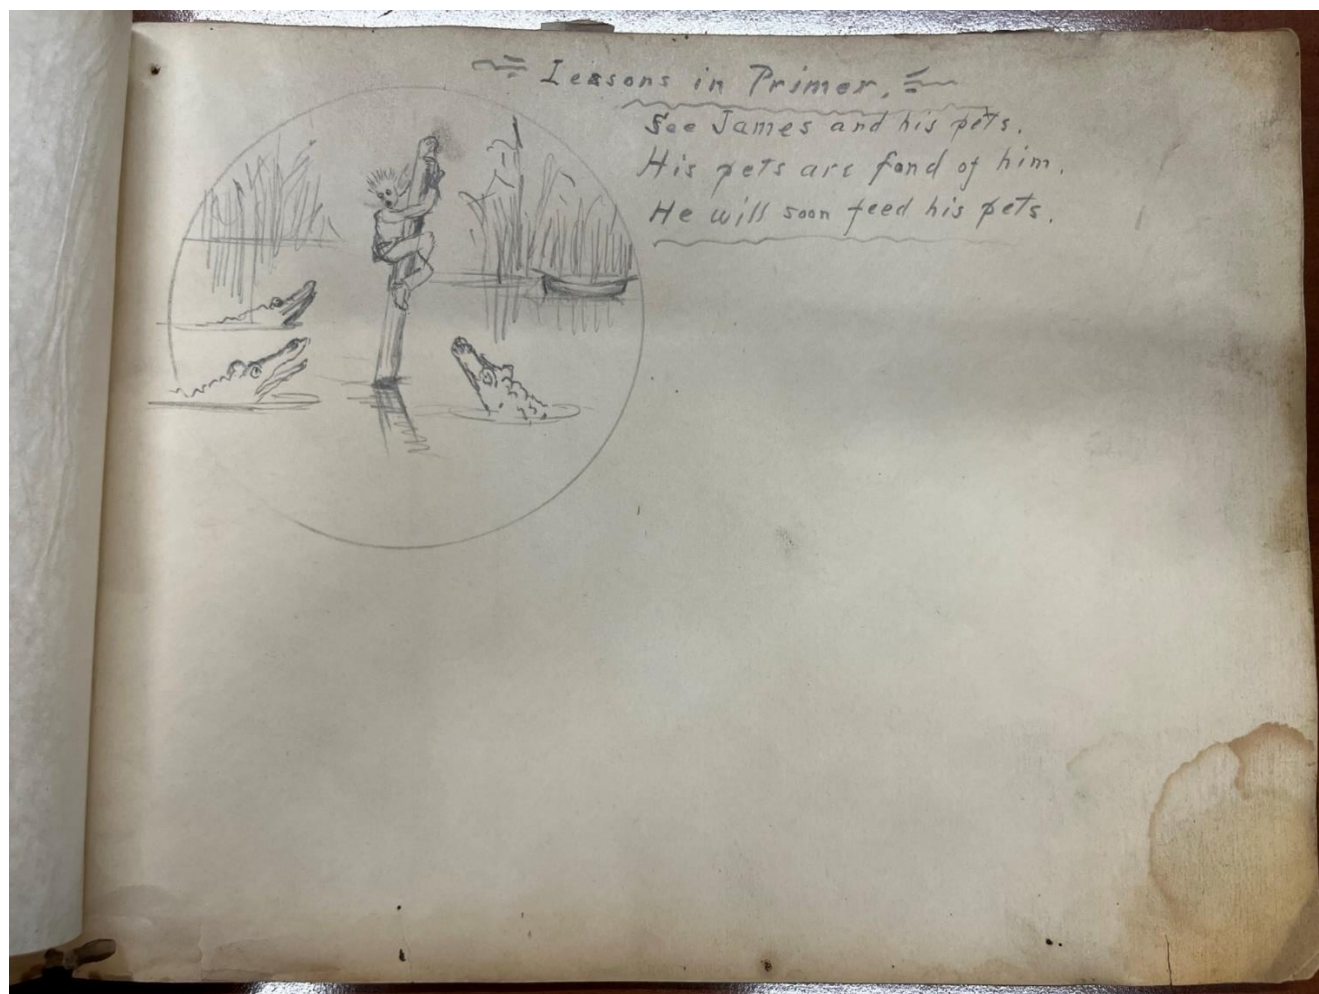 Lessons in Primer.
See James and his pets.
His pets are fond of him.
He will soon feed his pets.